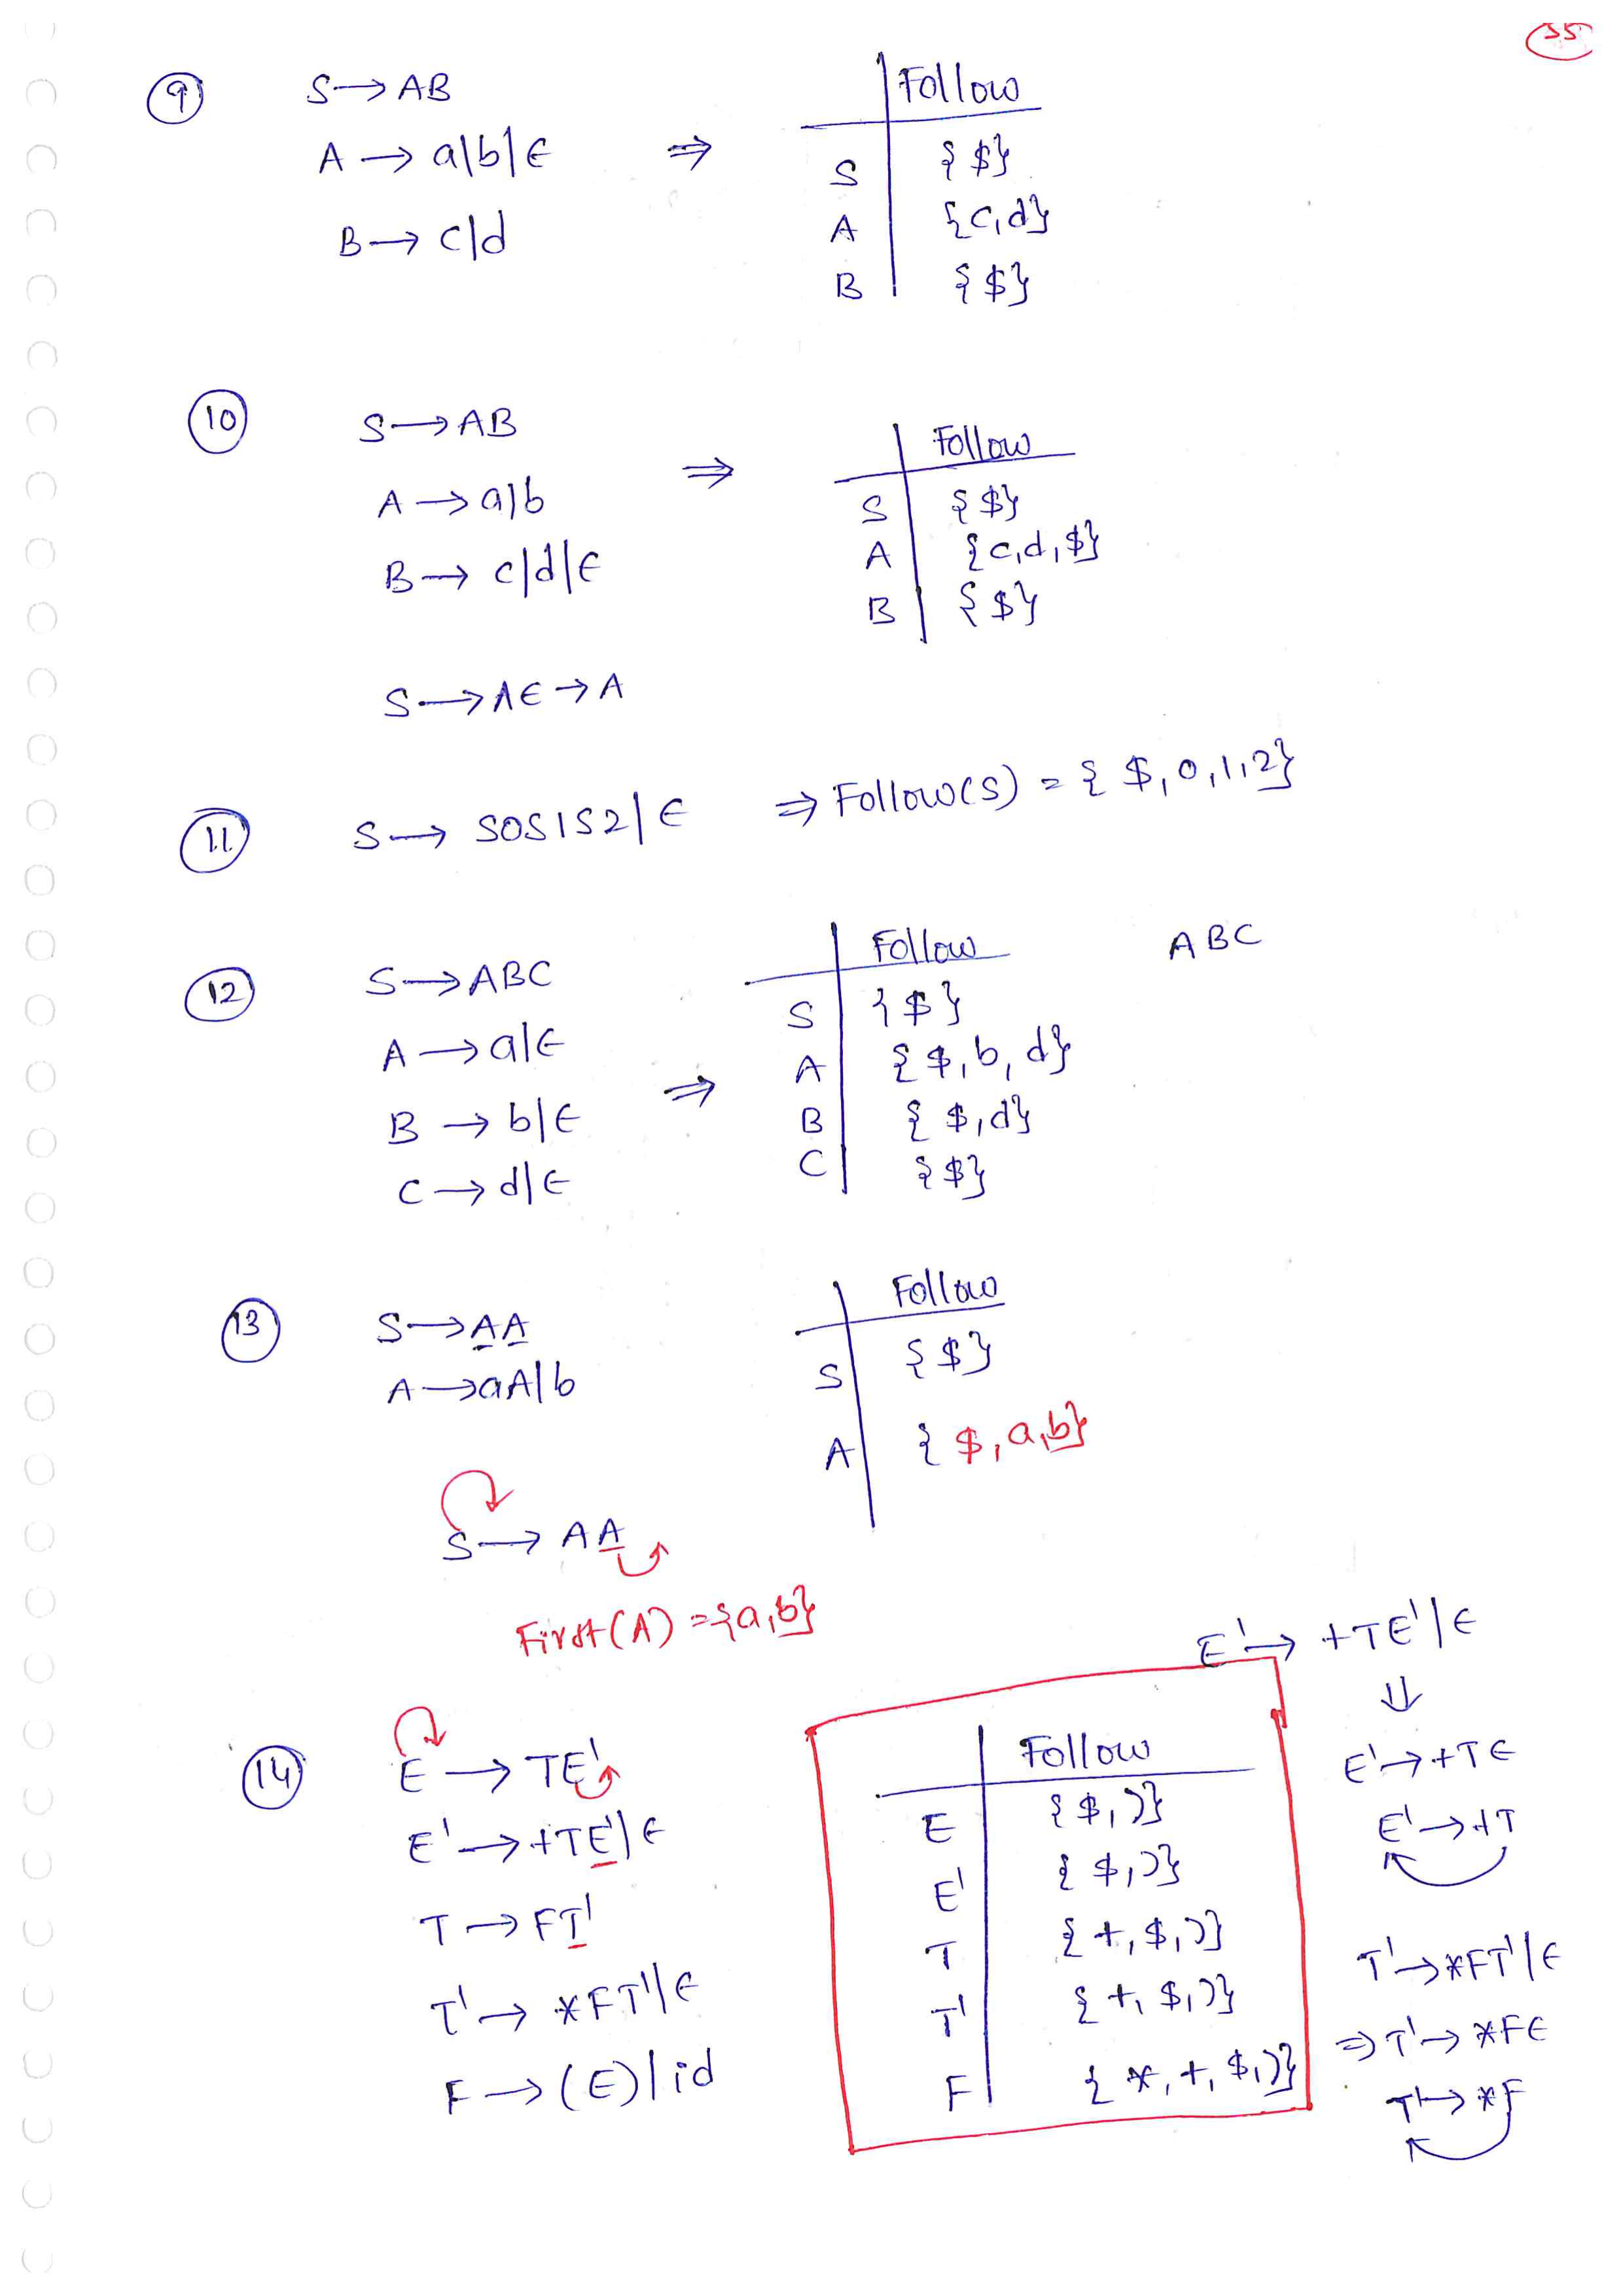 35
9 S→AB
A→a|b|ϵ ⇒
B→c|d
Follow
S {$}
A {c,d}
B {$}
10 S→AB
A→a|b ⇒
B→c|d|ϵ
S→Aϵ→A
Follow
S {$}
A {c,d,$}
B {$}
11 S→S0S1S2|ϵ ⇒Follow(S) = {$,0,1,2}
12 S→ABC
A→a|ϵ
B→b|ϵ ⇒
C→d|ϵ
Follow
S {$}
A {$,b,d}
B {$,d}
C {$}
ABC
13 S→AA
A→aA|b
Follow
S {$}
A {$,a,b}
S→AA
First(A)={a,b}
14 E→TE'
E'→+TE'|ϵ
T→FT'
T'→*FT'|ϵ
F→(E)|id
Follow
E {$,)}
E' {$,)}
T {+,$,)}
T' {+,$,)}
F {*,+,$,)}
E'→+TE'|ϵ
⇓
E'→+Tϵ
E'→+T
T'→*FT'|ϵ
⇒T'→*Fϵ
T'→*F